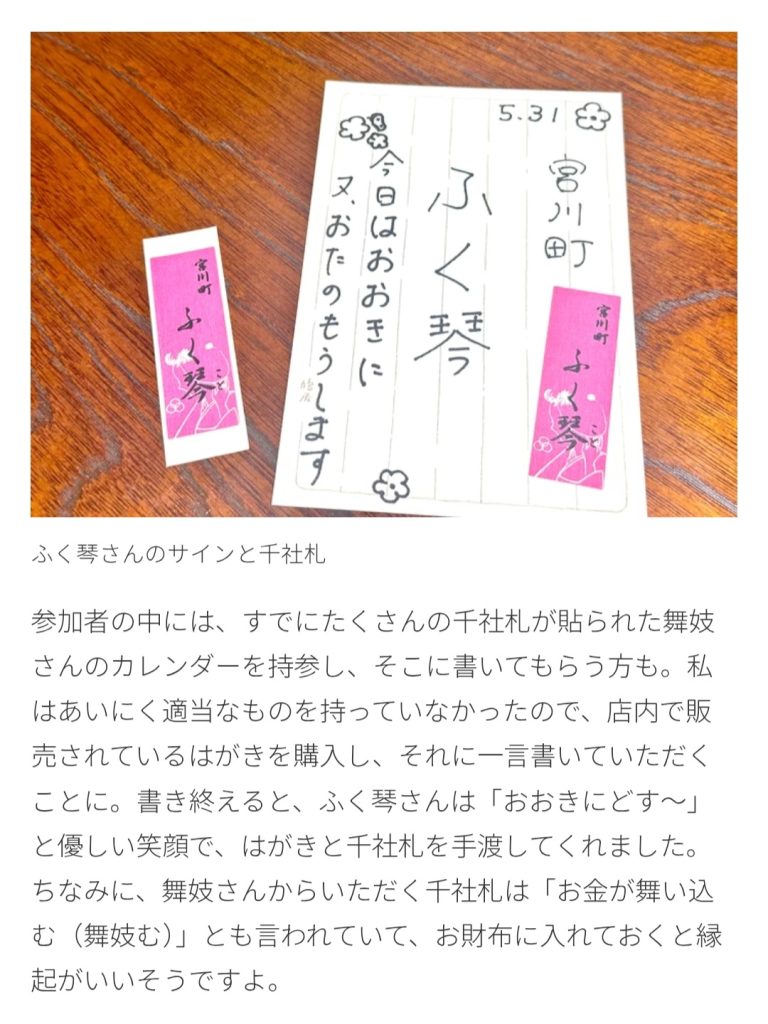 5.31
宮川町
ふく琴
今日はおおきに
又、おたのもうします
宮川町
ふく琴
こと
宮川町
ふく琴
こと
ふく琴さんのサインと千社札
参加者の中には、すでにたくさんの千社札が貼られた舞妓
さんのカレンダーを持参し、そこに書いてもらう方も。私
はあいにく適当なものを持っていなかったので、店内で販
売されているはがきを購入し、それに一言書いていただく
ことに。書き終えると、ふく琴さんは「おおきにどす〜」
と優しい笑顔で、はがきと千社札を手渡してくれました。
ちなみに、舞妓さんからいただく千社札は「お金が舞い込
む（舞妓む）」とも言われていて、お財布に入れておくと縁
起がいいそうですよ。